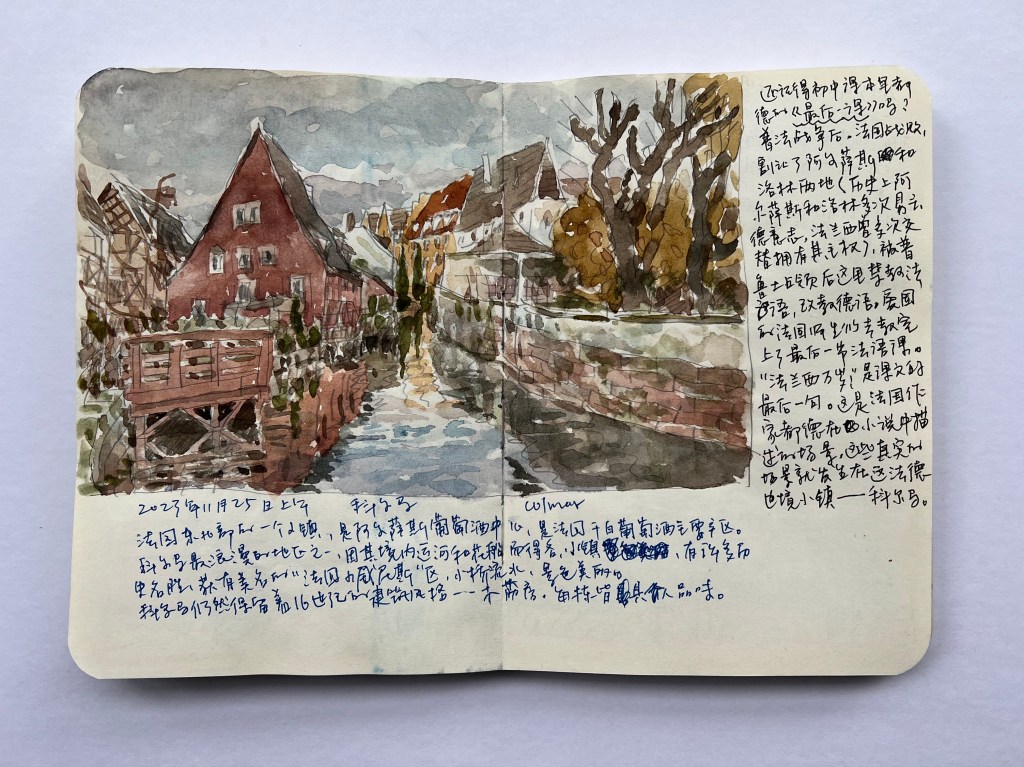 还记得初中课本里都
德的《最后一课》吗？
普法战争后，法国战败，
割让了阿尔萨斯和
洛林两地（历史上阿
尔萨斯和洛林多次易主，
德意志，法兰西曾多次交
替拥有其主权），被普
鲁士占领后这里禁教法
语，改教德语。爱国
的法国师生们去教完
上了最后一节法语课。
"法兰西万岁！"是课文的
最后一句。这是法国作
家都德在小说中描
述的场景，这些真实的
场景就发生在这法德
边境小镇——科尔马。
2023年11月25日上午 科尔马 Colmar
法国东北部的一个小镇，是阿尔萨斯葡萄酒中心，是法国干白葡萄酒主要产区。
科尔马最浪漫的地区之一，因其境内运河和花船而得名，小镇，有许多历
史名胜，获有美名的"法国小威尼斯"区，小桥流水，景色美丽。
科尔马仍然保留着16世纪的建筑风格——木筋房，每栋皆具人品味。